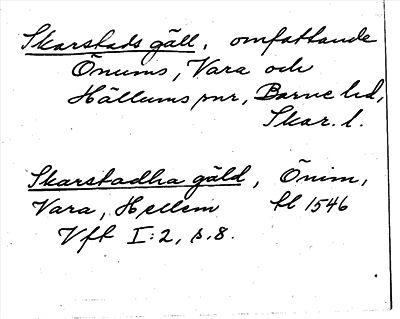 Skarstads gäll, omfattande
Önums, Vara och
Hällums pnr, Barne hd,
Skar. l.
Skarstadha gäld, Önim,
Vara, Hellem tl 1546
Vft I:2, s. 8.